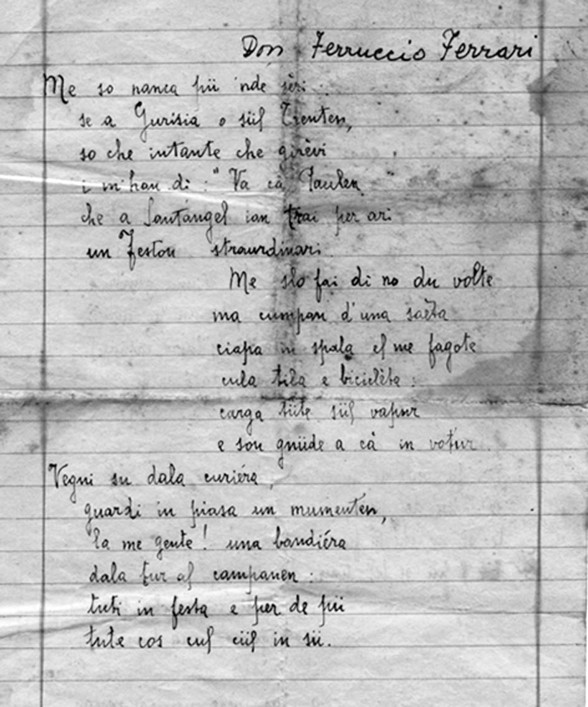 Don Ferruccio Ferrari
Me so nanca piü 'nde sèri
se a Gurisia o sül Trenten,
so che intante che girèvi
i m'han di: "Va cà Paulen
che a Santangel ian trai per ari
un Feston straurdinari.
Me slo fai di no du volte
ma cumpan d'una saèta
ciapa in spala el me fagote
cula tila e biciclèta:
carga tüte sül vapur
e son gnüde a cà in votur.
Vegni su dala curiéra,
guardi in piasa un mumenten,
la me gente! una bandiéra
dala tur al campanen:
tuti in festa e per de piü
tute cos cul cül in sü.